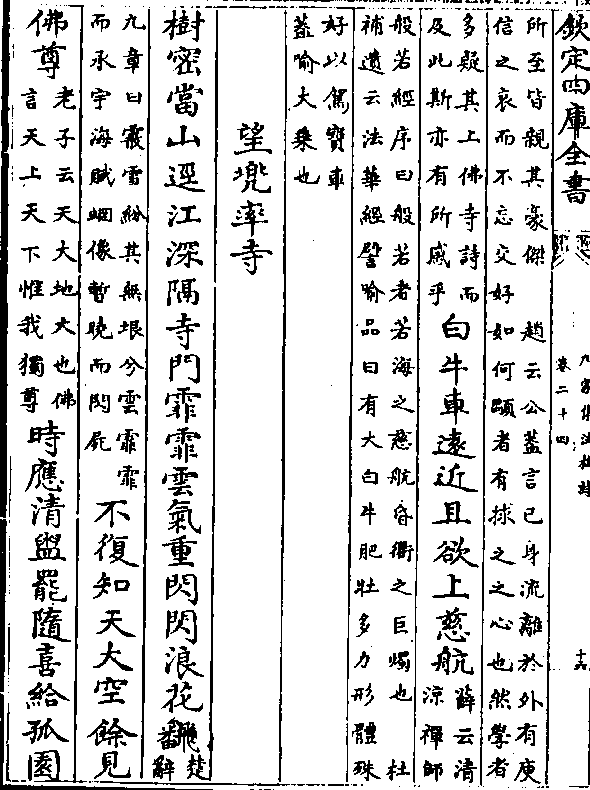 欽定四庫全書
九家集注杜詩
卷二十四
十六
所至皆親其豪傑　趙云公蓋言己身流離於外有庾
信之哀而不忘交好如何顒者有捄之之心也然學者
多疑其上佛寺詩而
及此斯亦有所感乎
白牛車遠近且欲上慈航
薛云清
涼禪師
般若經序曰般若者若海之慈航昏衢之巨燭也　杜
補遺云法華經譬喻品曰有大白牛肥壯多力形體殊
好以駕寶車
蓋喻大乗也
望兜率寺
樹密當山逕江深隔寺門霏霏雲氣重閃閃浪花飜
楚
辭
九章曰霰雪紛其無垠兮雲霏霏
而承宇海賦蝄像暫曉而閃屍
不復知天大空餘見
佛尊
老子云天大地大也佛
言天上天下惟我獨尊
時應清盥罷隨喜給孤園